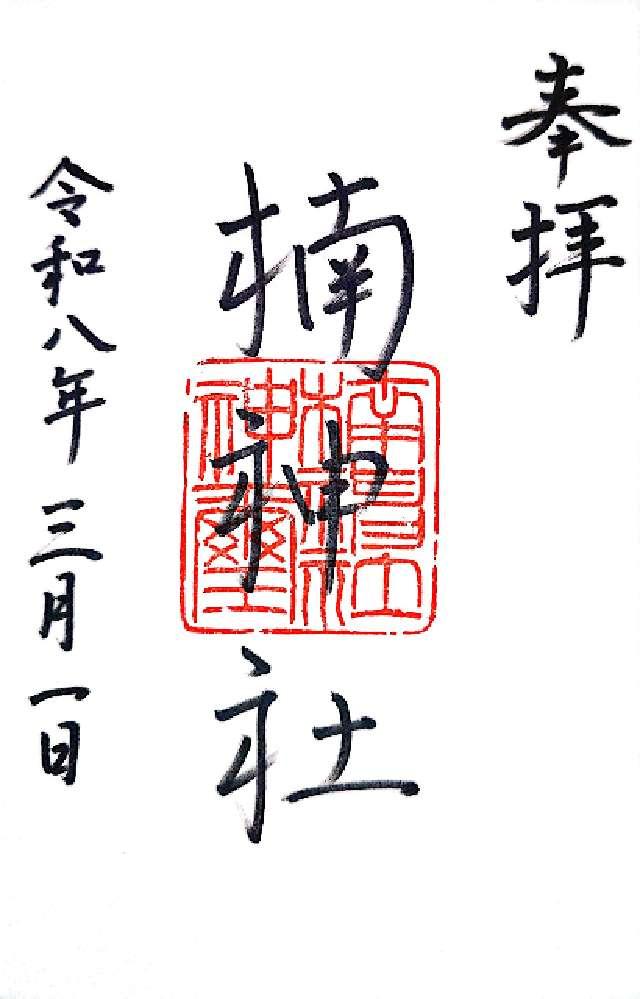 奉拝
楠神社
令和八年三月一日